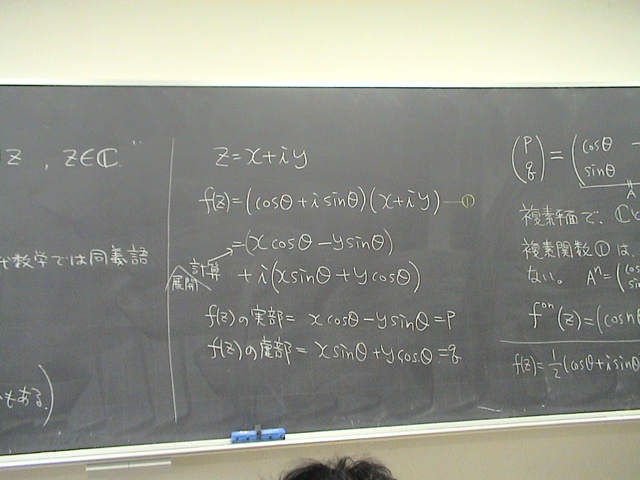 z , z∈ℂ "
代数学では同義語
もある.)
z = x + i y
f(z) = (cosθ + i sinθ)(x + i y) — ①
= (x cosθ − y sinθ)
計算
展開
+ i(x sinθ + y cosθ)
f(z)の実部 = x cosθ − y sinθ = p
f(z)の虚部 = x sinθ + y cosθ = q
(p q) = (cosθ − sinθ
A
複素平面で、ℂ
複素関数①は、
ない。 Aⁿ = (cos sin
fᵒⁿ(z) = (cos n
f(z) = 1/2 (cosθ + i sinθ